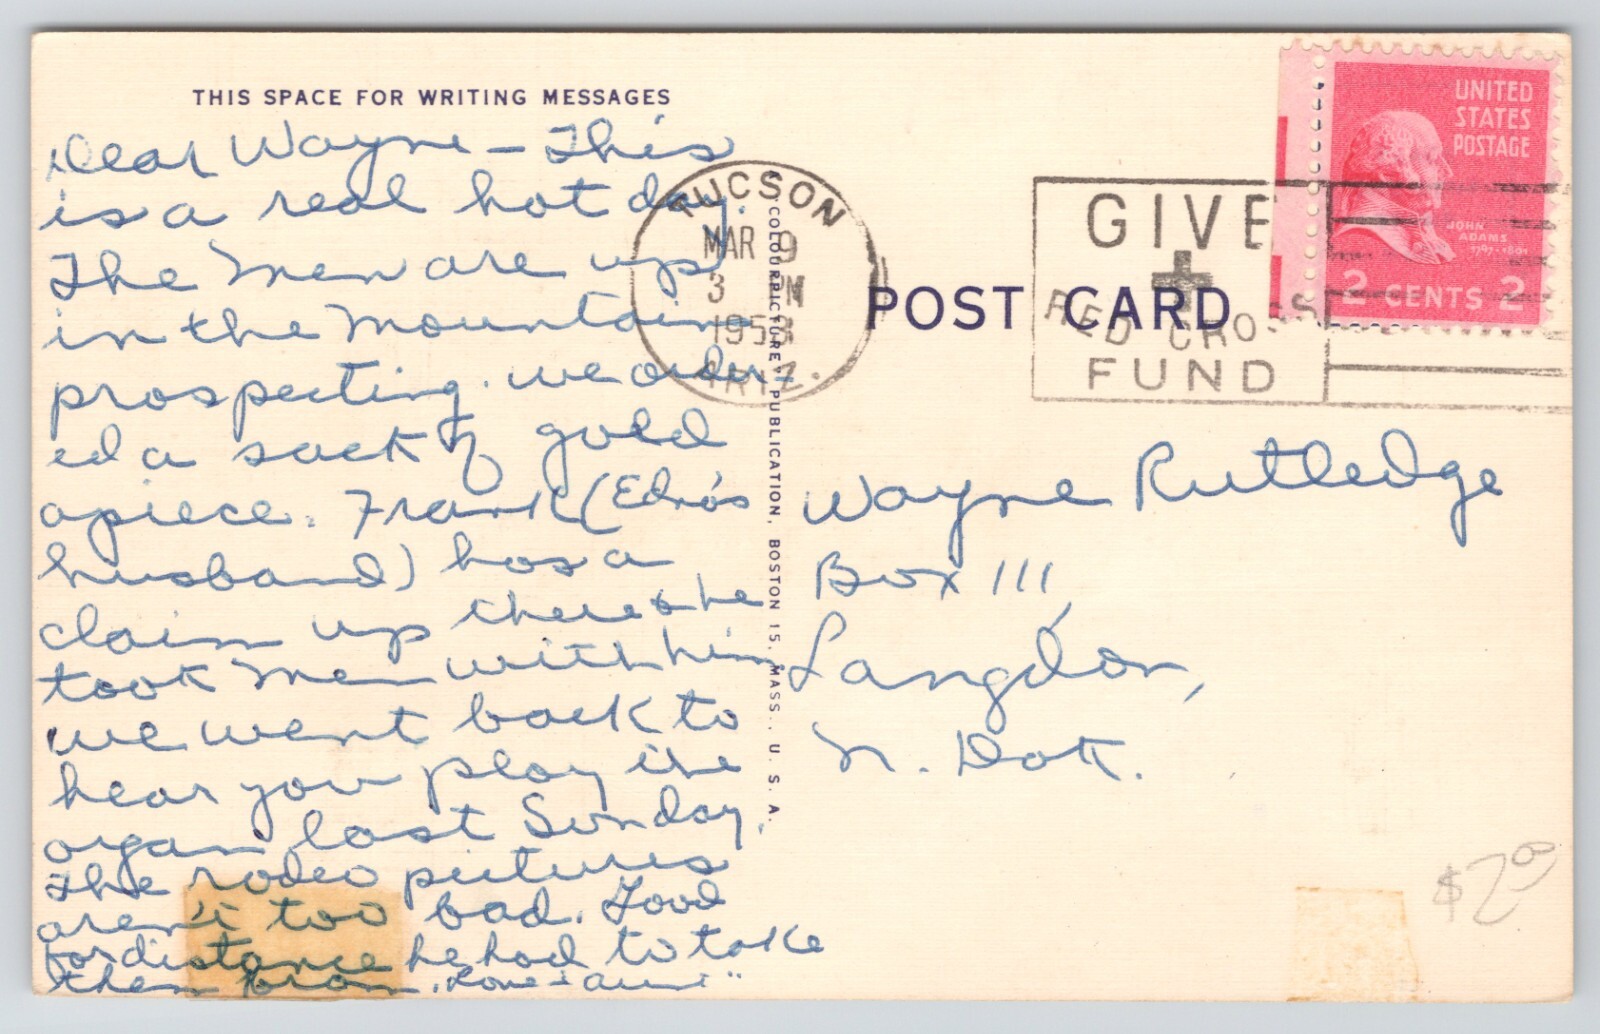 THIS SPACE FOR WRITING MESSAGES
Dear Wayne - This
is a real hot day.
The men are up
in the mountains
prospecting. We order-
ed a sack of gold
apiece. Frank (Edna's
husband) has a
claim up there & he
took men with him
we went back to
hear you play the
organ last Sunday.
The rodeo pictures
aren't too bad. Good
for distance he had to take
them from. Love - "Aunt"
"COLOURPICTURE" PUBLICATION, BOSTON 15, MASS., U. S. A.
TUCSON
MAR 9
3 PM
1953
ARIZ.
POST CARD
GIVE
RED CROSS
FUND
UNITED
STATES
POSTAGE
JOHN
ADAMS
1797-1801
2 CENTS 2
Wayne Rutledge
Box 111,
Langdon,
N. Dak.
$2.00